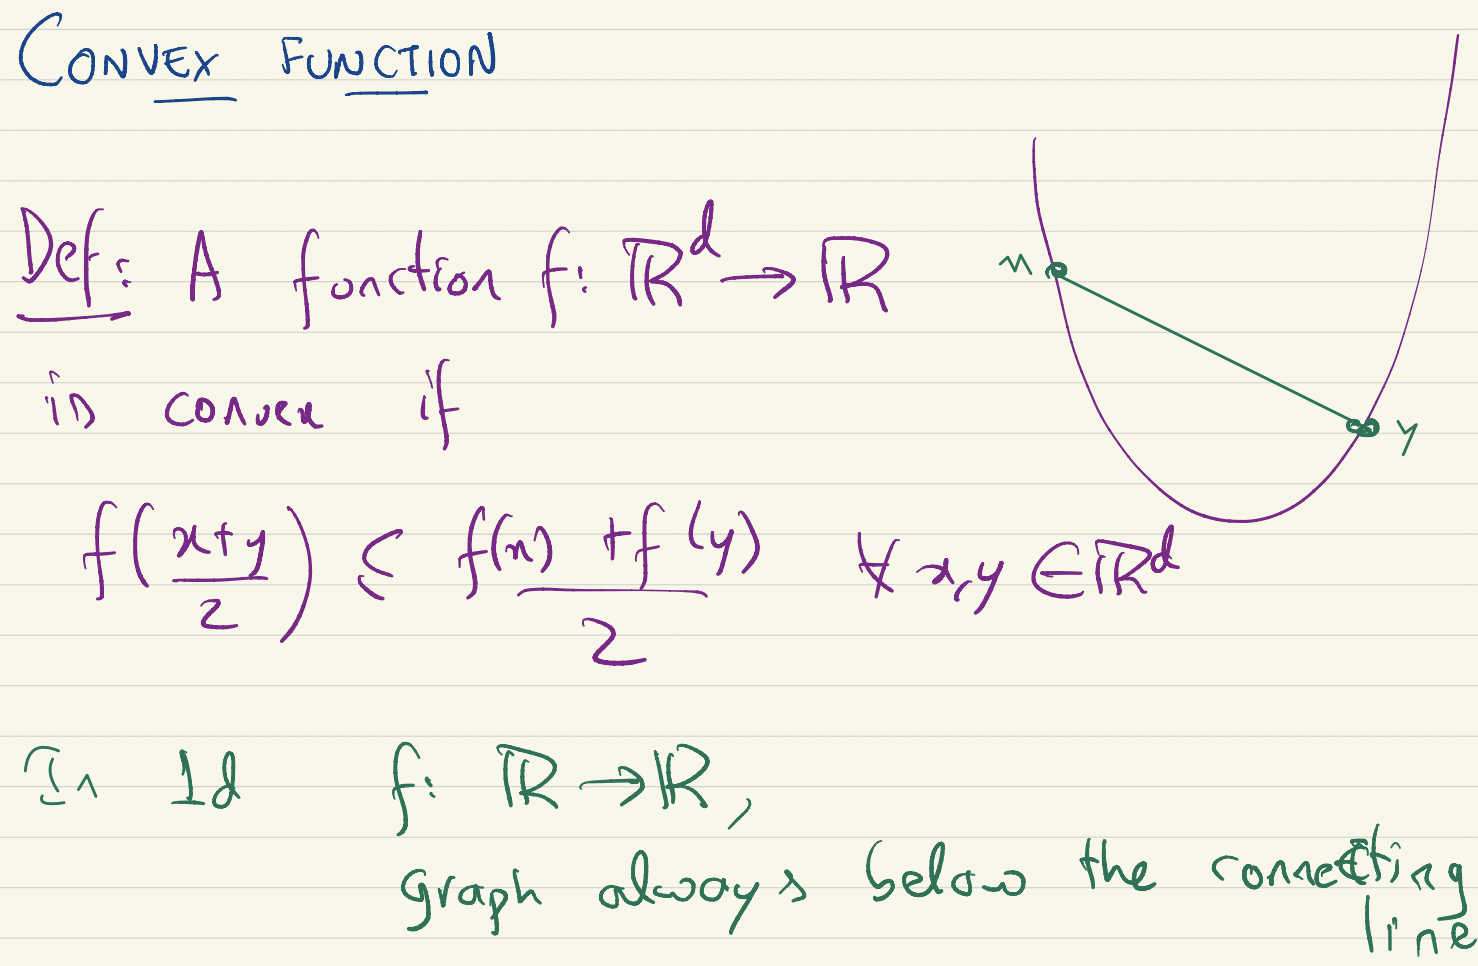 CONVEX FUNCTION
Def: A function f: ℝ^d → ℝ
is convex if
f((x+y)/2) ≤ (f(x) + f(y))/2 ∀ x,y ∈ ℝ^d
x
y
In 1d f: ℝ → ℝ,
graph always below the connecting
line